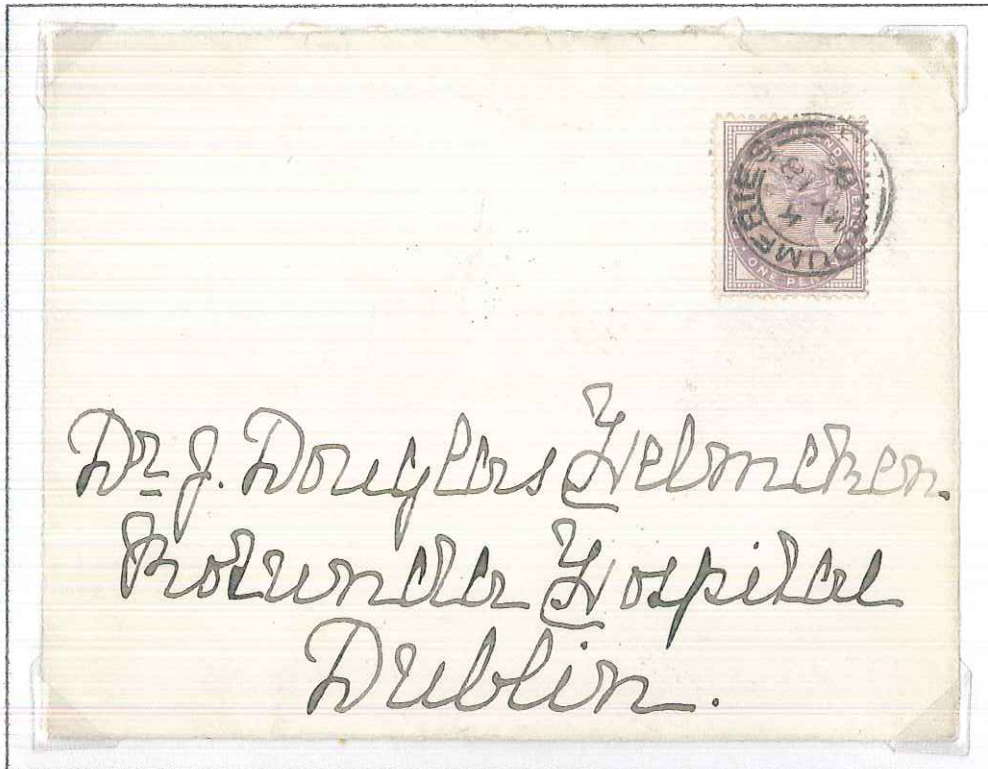 DUMFRIES
MY 13
98
ONE PEN
Dr J. Douglas Helmcken.
Rotunda Hospital
Dublin.